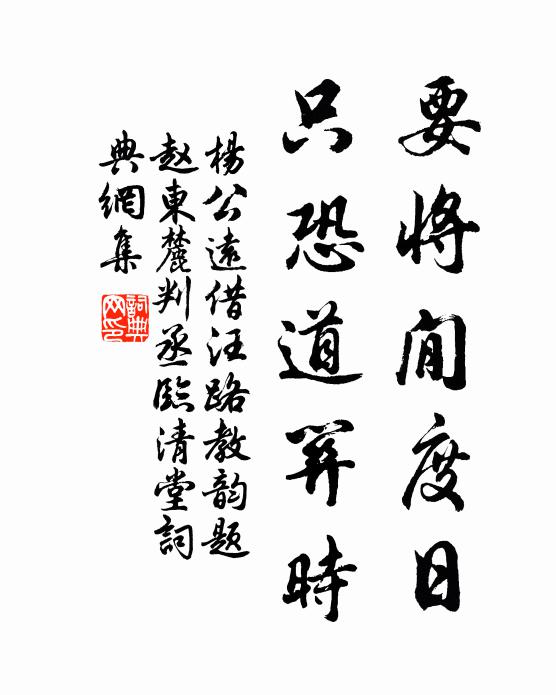 要將閒度日
只恐道時
楊公遠借汪路教韵题
赵東麓判丞臨清堂詞
典網集
詞典
网印